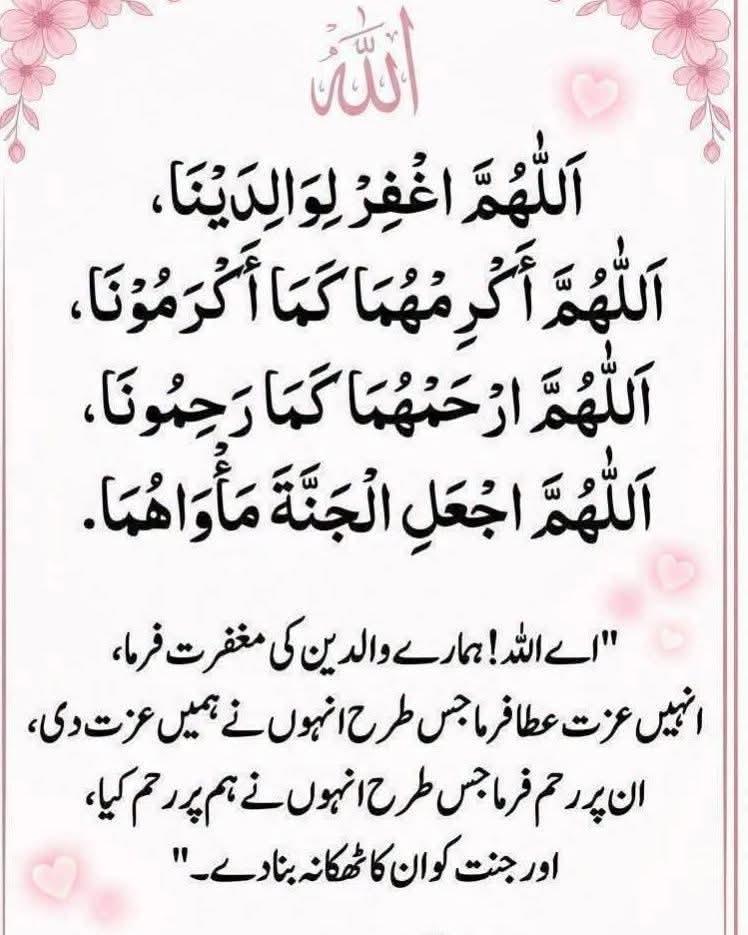 الله
اَللّٰهُمَّ اغْفِرْ لِوَالِدَيْنَا،
اَللّٰهُمَّ أَكْرِمْهُمَا كَمَا أَكْرَمُوْنَا،
اَللّٰهُمَّ ارْحَمْهُمَا كَمَا رَحِمُونَا،
اَللّٰهُمَّ اجْعَلِ الْجَنَّةَ مَأْوَاهُمَا.
"اے اللہ! ہمارے والدین کی مغفرت فرما،
انہیں عزت عطا فرما جس طرح انہوں نے ہمیں عزت دی،
ان پر رحم فرما جس طرح انہوں نے ہم پر رحم کیا،
اور جنت کو ان کا ٹھکانہ بنا دے۔"